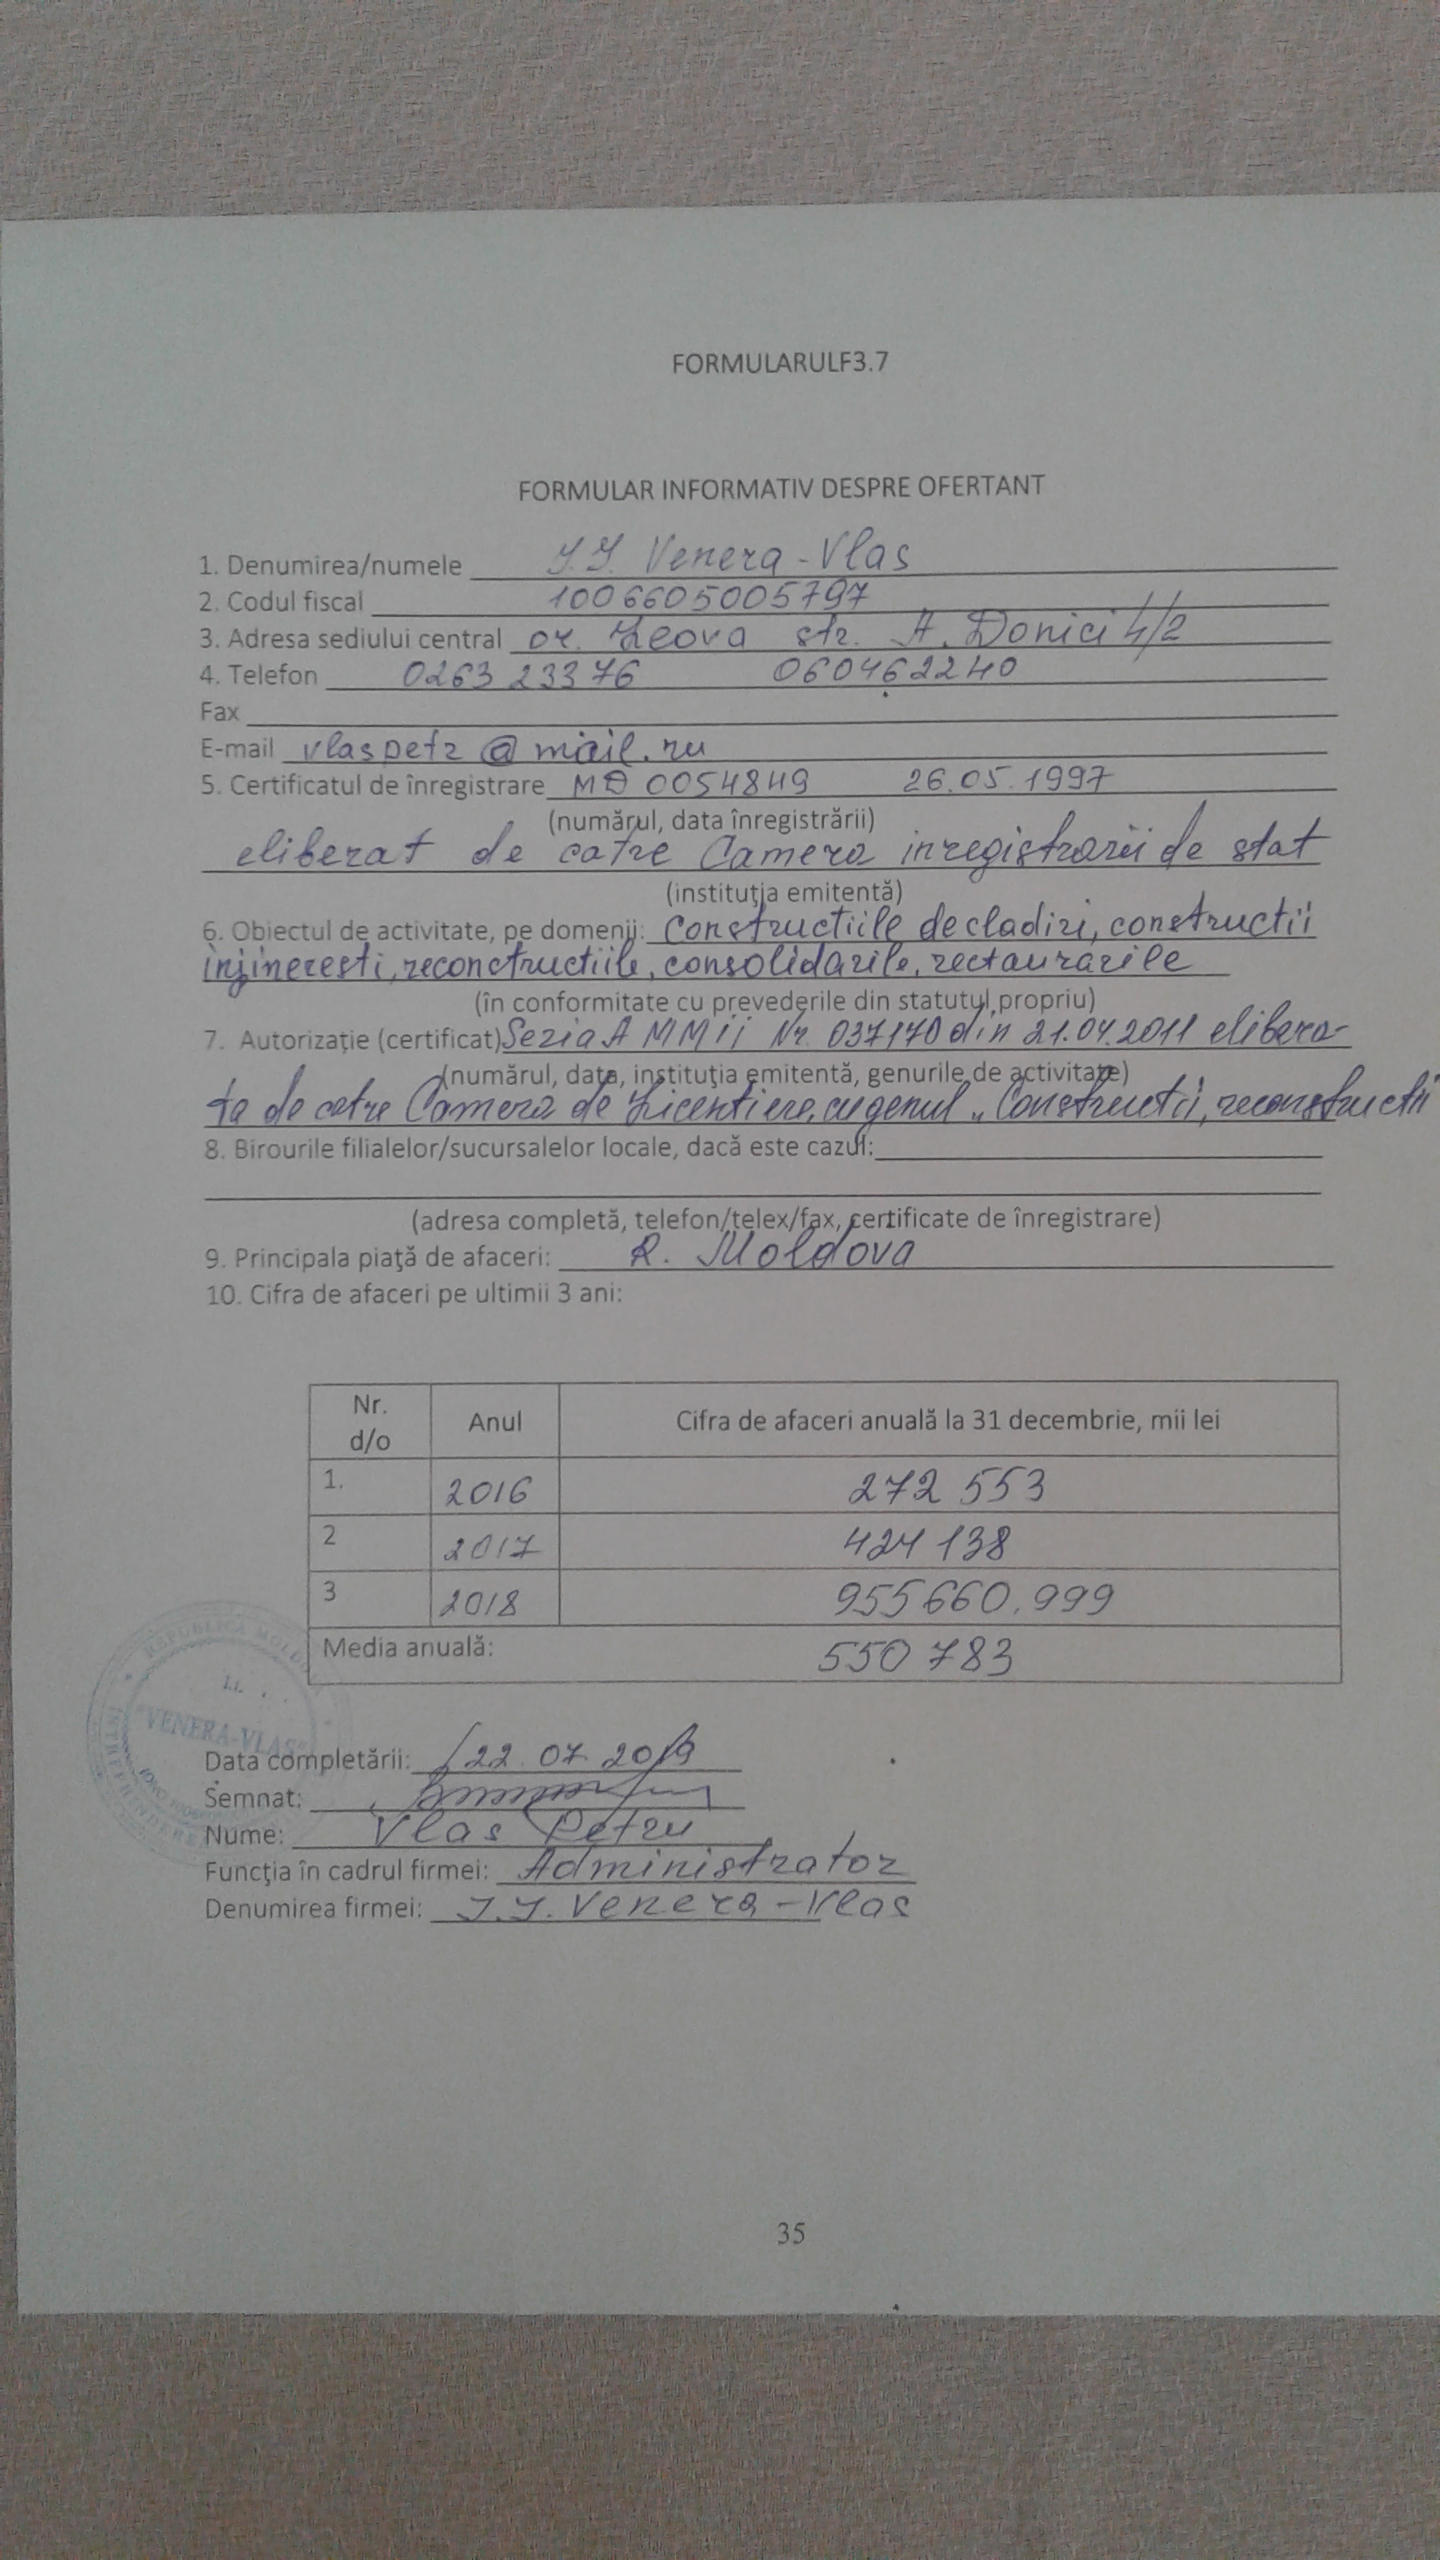 FORMULARULF3.7
FORMULAR INFORMATIV DESPRE OFERTANT
1. Denumirea/numele I.I. Venera-Vlas
2. Codul fiscal 1006605005797
3. Adresa sediului central or. Leova str. A. Donici 4/2
4. Telefon 0263 23376 060462240
Fax
E-mail vlaspetr@mail.ru
5. Certificatul de înregistrare MD 0054849 26.05.1997
(numărul, data înregistrării)
eliberat de catre Camera inregistrarii de stat
(instituţia emitentă)
6. Obiectul de activitate, pe domenii: Constructiile de cladiri, constructii
injineresti, reconctructiile, consolidarile, rectaurarile
(în conformitate cu prevederile din statutul propriu)
7. Autorizație (certificat) Seria A MMII Nr. 037170 din 21.04.2011 elibera-
(numărul, data, instituţia emitentă, genurile de activitate)
ta de catre Camera de Licentiere, cu genul „Constructii, reconstructii
8. Birourile filialelor/sucursalelor locale, dacă este cazul:
(adresa completă, telefon/telex/fax, certificate de înregistrare)
9. Principala piaţă de afaceri: R. Moldova
10. Cifra de afaceri pe ultimii 3 ani:
Nr. d/o Anul Cifra de afaceri anuală la 31 decembrie, mii lei
1. 2016 272 553
2 2017 424 138
3 2018 955660.999
Media anuală: 550 783
REPUBLICA MOLDOVA
I.I.
"VENERA-VLAS"
Data completării: 22.07.2019
Semnat:
Nume: Vlas Petru
Funcţia în cadrul firmei: Administrator
Denumirea firmei: I.I. Venera-Vlas
35